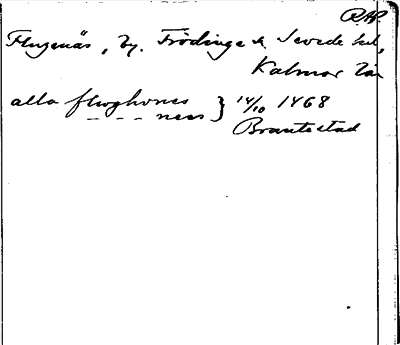 Flugenäs, by. Frödinge sn. Sevede hd,
Kalmar län
alla flughones } 14/10 1468
– – – ness
Brantestad